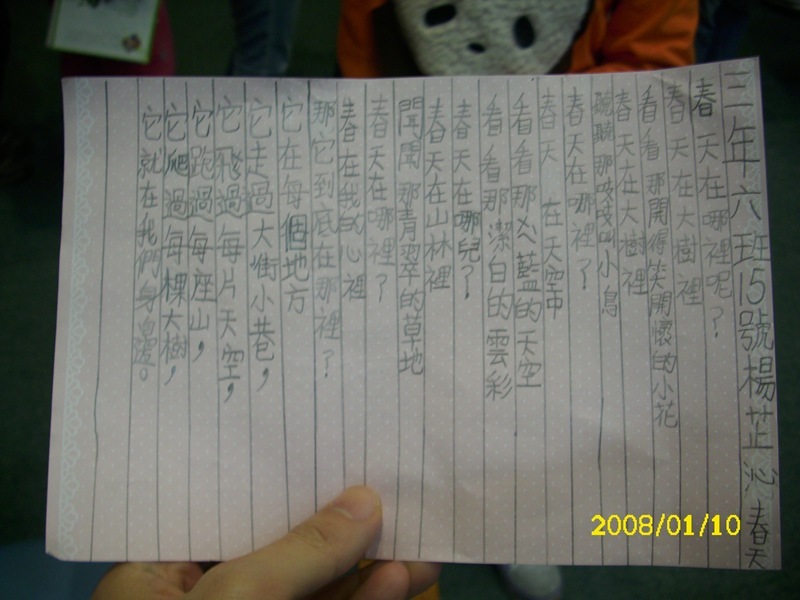 三年六班15號楊芷沁 春天
春天在哪裡呢？
春天在大樹裡
看看那開得笑開懷的小花
春天在大樹裡
聽聽那吱吱叫小鳥
春天在哪裡？
春天 在天空中
看看那公藍的天空
看看那潔白的雲彩
春天在哪兒？
春天在山林裡
聞聞那青翠的草地
春天在哪裡？
春在我的心裡
那它到底在那裡？
它在每個地方
它走過大街小巷，
它飛過每片天空，
它跑過每座山，
它爬過每棵大樹，
它就在我們身邊。
2008/01/10